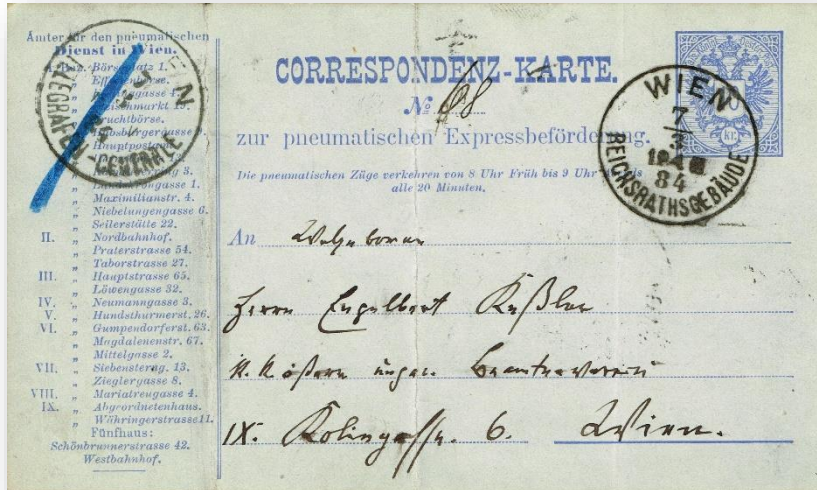 Ämter für den pneumatischen
Dienst in Wien.
I. Bez. Börseplatz 1.
" Effectenbörse.
" Fleischmarkt 19.
" Fruchtbörse.
" Habsburgergasse 9.
" Hauptpostamt
" ring 3.
" Landskrongasse 1.
" Maximilianstr. 4.
" Niebelungengasse 6.
" Seilerstätte 22.
II. " Nordbahnhof.
" Praterstrasse 54.
" Taborstrasse 27.
III. " Hauptstrasse 65.
" Löwengasse 32.
IV. " Neumanngasse 3.
V. " Hundsthurmerst. 26.
VI. " Gumpendorferst. 63.
" Magdalenenstr. 67.
" Mittelgasse 2.
VII. " Siebensterng. 13.
" Zieglergasse 8.
VIII. " Mariatreugasse 4.
IX. " Abgeordnetenhaus.
" Währingerstrasse 11.
Fünfhaus:
Schönbrunnerstrasse 42.
Westbahnhof.
WIEN
TELEGRAFEN-CENTRALE
CORRESPONDENZ-KARTE.
No 68
zur pneumatischen Expressbeförderung.
Die pneumatischen Züge verkehren von 8 Uhr Früh bis 9 Uhr
alle 20 Minuten.
10
KR.
WIEN
7
3
84
REICHSRATHSGEBÄUDE
An Wohlgeboren
Herrn Engelbert Keßler
Beamtenverein
IX. Kolingasse. 6. Wien.